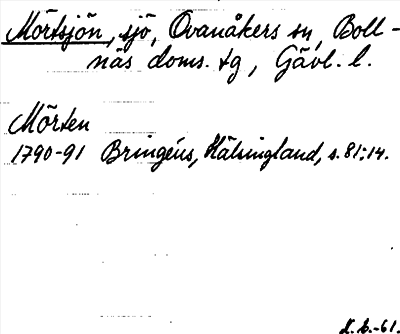 Mörtsjön, sjö, Ovanåkers sn, Boll-
näs doms. tg, Gävl. l.
Mörten
1790-91 Bringéus, Hälsingland, s. 81:14.
K. b.-61.